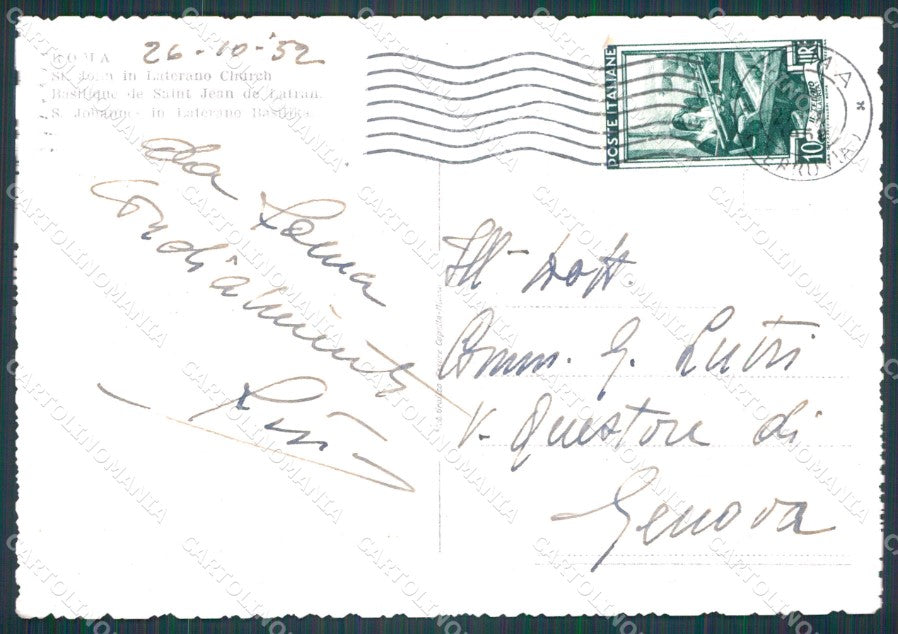 26-10-'52
ROMA
St. Joan in Laterano Church
Basilique de Saint Jean de Latran.
S. Johannes in Laterano Basilika
POSTE ITALIANE
LIRE
10
da Roma
Cordialmente
Ill- Dott.
Comm. G. Lutri
V. Questore di
Genova
CARTOLINOMANIA